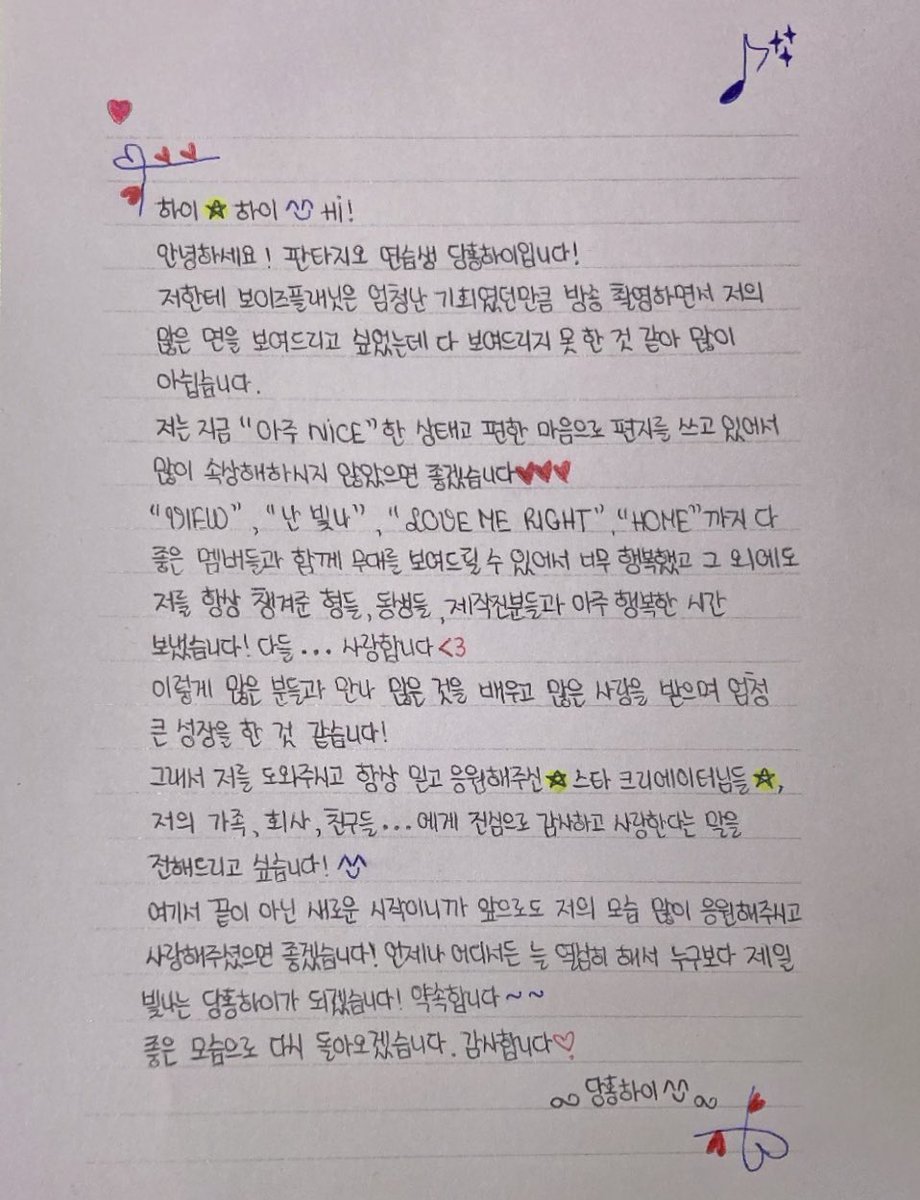 하이☆하이 ^^ Hi!
안녕하세요! 판타지오 연습생 당홍하이입니다!
저한테 보이즈플래닛은 엄청난 기회였던만큼 방송 촬영하면서 저의
많은 면을 보여드리고 싶었는데 다 보여드리지 못 한 것 같아 많이
아쉽습니다.
저는 지금 “아주 NICE”한 상태고 편한 마음으로 편지를 쓰고 있어서
많이 속상해하시지 않았으면 좋겠습니다♥♥♥
“난 빛나”, “LOVE ME RIGHT”, “HOME”까지 다
좋은 멤버들과 함께 무대를 보여드릴 수 있어서 너무 행복했고 그 외에도
저를 항상 챙겨준 형들, 동생들, 제작진분들과 아주 행복한 시간
보냈습니다! 다들... 사랑합니다<3
이렇게 많은 분들과 만나 많은 것을 배우고 많은 사랑을 받으며 엄청
큰 성장을 한 것 같습니다!
그래서 저를 도와주시고 항상 믿고 응원해주신☆스타 크리에이터님들☆,
저의 가족, 회사, 친구들...에게 진심으로 감사하고 사랑한다는 말을
전해드리고 싶습니다! ^^
여기서 끝이 아닌 새로운 시작이니까 앞으로도 저의 모습 많이 응원해주시고
사랑해주셨으면 좋겠습니다! 언제나 어디서든 늘 열심히 해서 누구보다 제일
빛나는 당홍하이가 되겠습니다! 약속합니다~~
좋은 모습으로 다시 돌아오겠습니다. 감사합니다♡
당홍하이^^